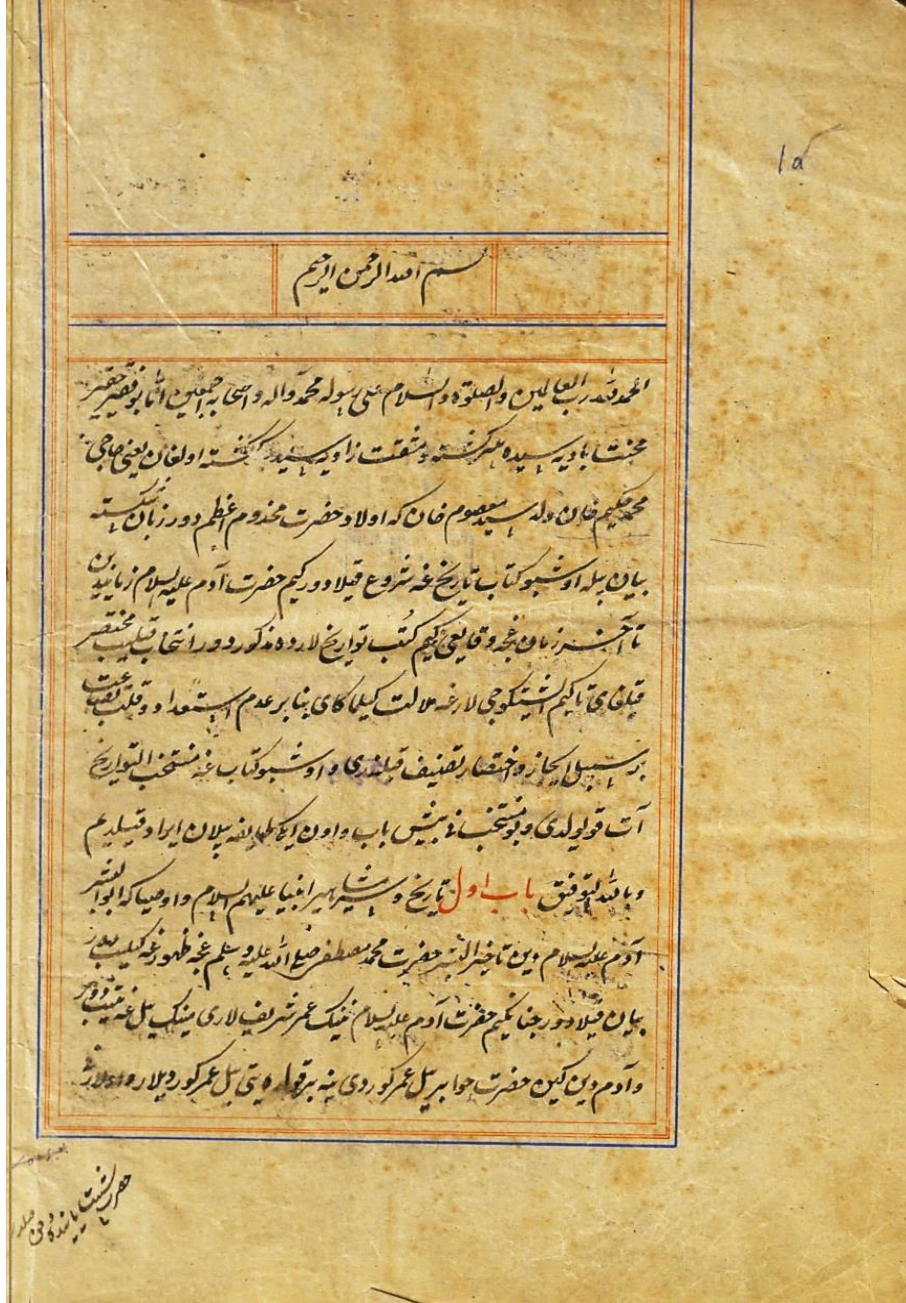 ۱۵
بسم الله الرحمن الرحیم
الحمد لله رب العالمین والصلوة والسلام علی رسوله محمد وآله واصحابه اجمعین اما بو فقیر حقیر
محنت بادیه سیده سرکشته ومشقت زاویه سیده کشته اولغان یعنی حاجی
محمد حکیم خان ولد سید معصوم خان که اولاد حضرت مخدوم اعظم دور زبان شکسته
بیان بیله اوشبو کتاب تاریخ غه شروع قیلادور کیم حضرت آدم علیه السلام زمانیدین
تا آخر زمان غچه وقایعی کیم کتب تواریخ لارده مذکور دور انتخاب قیلیب مختصر
قیلغای تا کیم ایشیتکوچی لارغه ملالت کیلماکای بنابر عدم استعداد وقلت بضاعت
بر سبیل ایجاز واختصار تصنیف قیلندی واوشبو کتاب غه منتخب التواریخ
آت قویولدی وبو منتخب نی بیش باب واون ایکی طایفه بیلان ایراد قیلدیم
وبالله التوفیق باب اول تاریخ وسیر مشاهیر انبیا علیهم السلام واوصیا که ابوالبشر
آدم علیه السلام دین تا خیر البشر حضرت محمد مصطفی صلی الله علیه وسلم غچه ظهورغه کیلیب دور
بیان قیلادور چنانکیم حضرت آدم علیه السلام نینک عمر شریف لاری مینک ییل غه یتیب دور
وآدم دین کین حضرت حوا بیر ییل عمر کوردی ینه بر قولده یتی ییل عمر کوردیلار
حضرت شیث